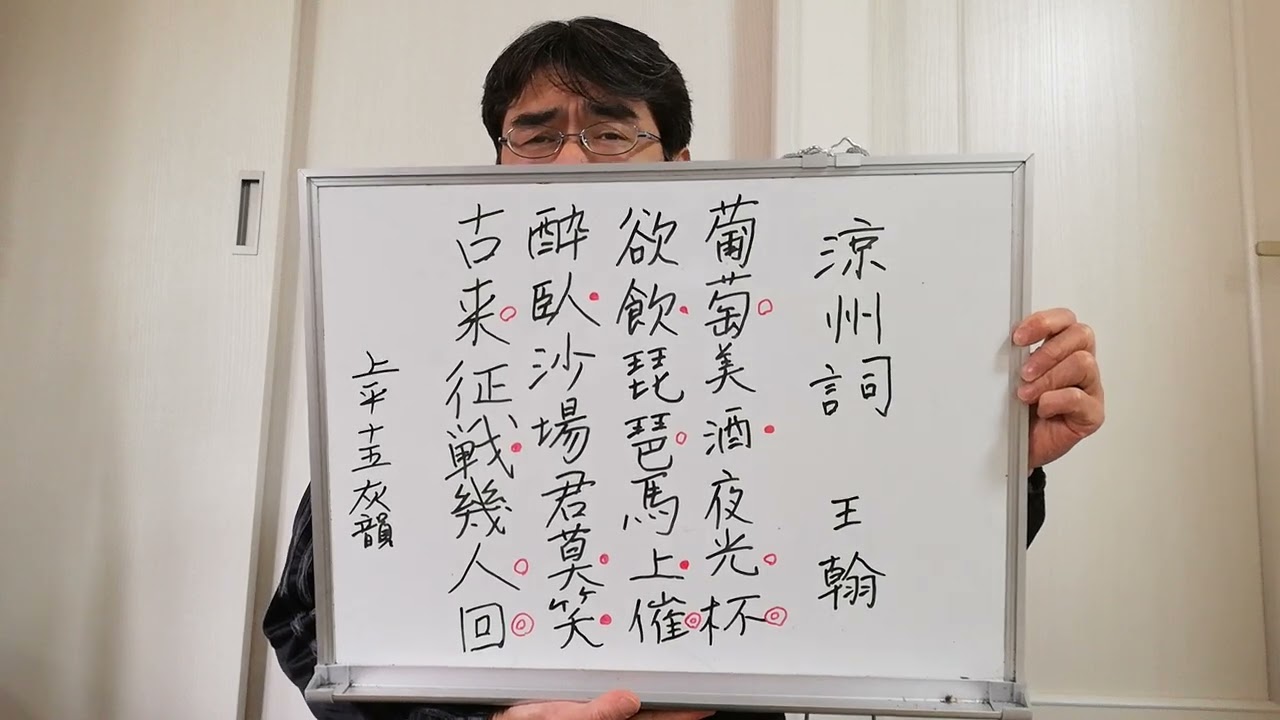 涼州詞 王翰
葡萄美酒夜光杯
欲飲琵琶馬上催
酔臥沙場君莫笑
古来征戦幾人回
上平十五灰韻